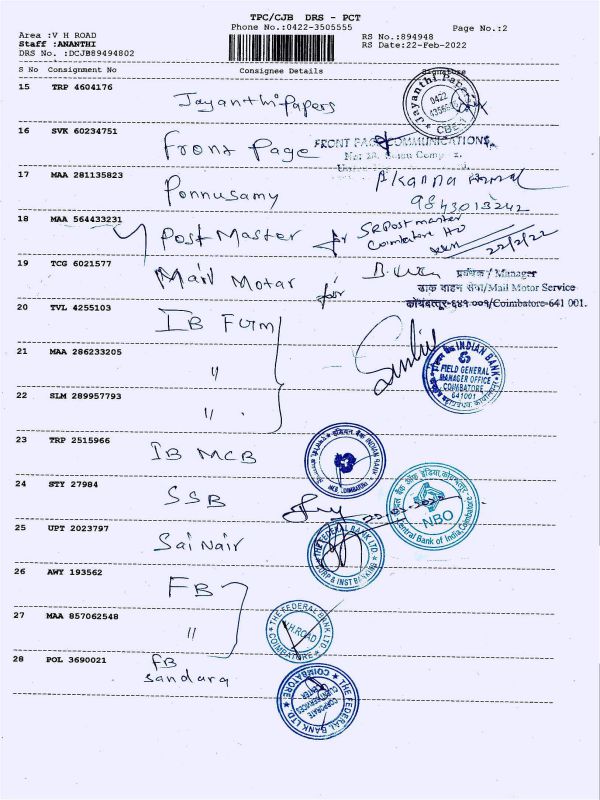 TPC/CJB DRS - PCT
Phone No.:0422-3505555
Page No.:2
Area :V H ROAD
Staff :ANANTHI
DRS No. :DCJB89494802
RS No.:894948
RS Date:22-Feb-2022
S No Consignment No Consignee Details Signature
15 TRP 4604176 Jayanthi papers
Jayanthi Papers
0422
CBE-1
16 SVK 60234751 Front Page
FRONT PAGE COMMUNICATIONS,
17 MAA 281135823 Ponnusamy
9843013242
18 MAA 564433231 Post Master for SR Post master
Coimbatore HO
22/2/22
19 TCG 6021577 Mail Motar for
प्रबंधक / Manager
डाक वाहन सेवा/Mail Motor Service
कोयंबत्तूर-६४१ ००१/Coimbatore-641 001.
20 TVL 4255103 IB Fgm
21 MAA 286233205 "
INDIAN BANK
FIELD GENERAL
MANAGER OFFICE
COIMBATORE
641001
22 SLM 289957793 "
23 TRP 2515966 IB MCB
इंडियन बैंक INDIAN BANK
COIMBATORE
24 STY 27984 SSB
सेन्ट्रल बैंक ऑफ इंडिया, कोयम्बत्तूर
NBO
Central Bank of India, Coimbatore
25 UPT 2023797 Sai Nair
THE FEDERAL BANK LTD.
CORP & INST BANKING
26 AWY 193562 FB
27 MAA 857062548 "
THE FEDERAL BANK LTD
V.H.ROAD
COIMBATORE
28 POL 3690021 FB
Sandara
THE FEDERAL BANK LTD.
CORPORATE
CLIENT SERVICES
CENTER
COIMBATORE